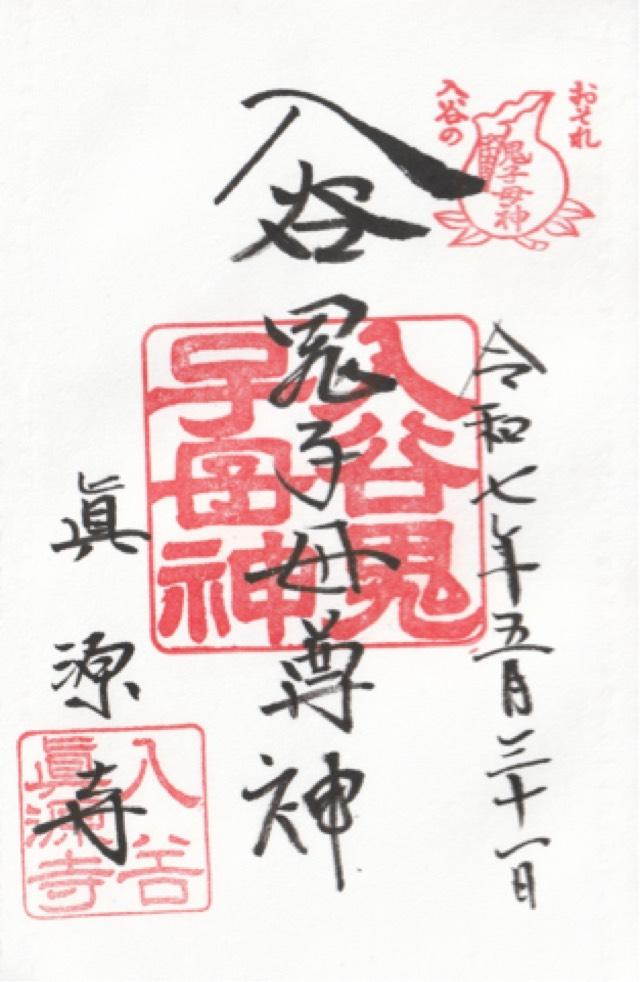 おそれ
入谷の
鬼子母神
令和七年五月三十一日
入谷鬼子母尊神
入谷鬼
子母神
眞源寺
入谷
眞源寺